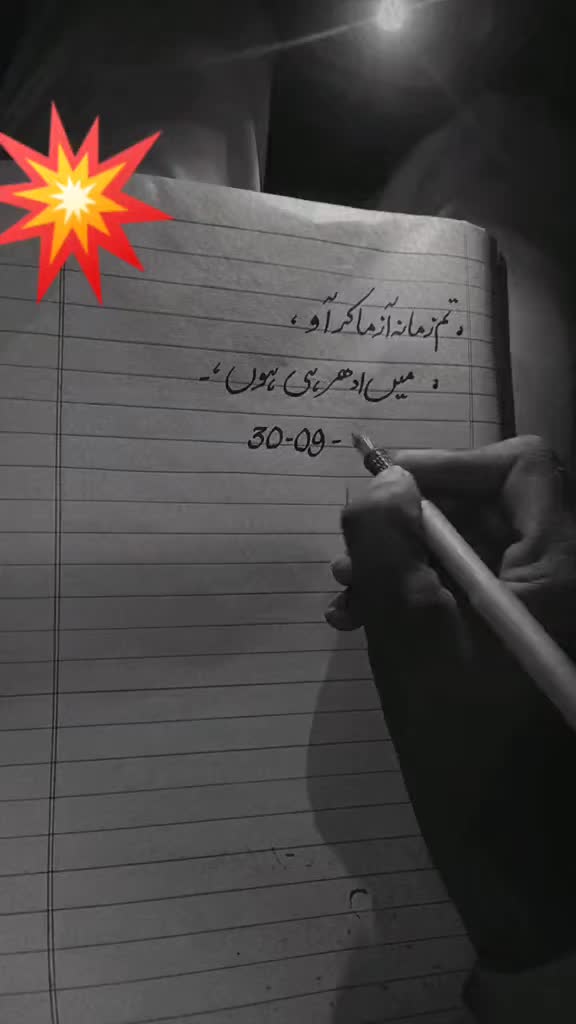 تم زمانہ آزما کر آؤ ،
میں ادھر ہی ہوں ،۔
30-09-